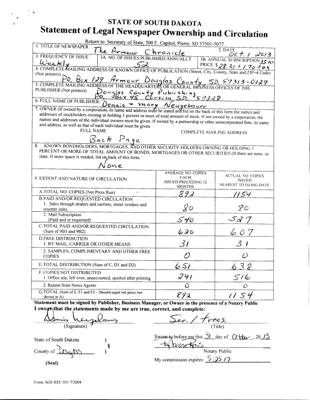 STATE OF SOUTH DAKOTA
Statement of Legal Newspaper Ownership and Circulation
Return to: Secretary of State, 500 E. Capitol, Pierre, SD 57501-5077
1. TITLE OF NEWSPAPER The Armour Chronicle
2. DATE Oct 1 2013
3. FREQUENCY OF ISSUE Weekly
3A. NO. OF ISSUES PUBLISHED ANNUALLY 52
3B. ANNUAL SUBSCRIPTION PRICE
PO Box 129 Armour Douglas County SD 57313-0129
5. COMPLETE MAILING ADDRESS OF THE HEADQUARTERS OR GENERAL BUSINESS OFFICES OF THE PUBLISHER
Douglas County Publishing
6. FULL NAME OF PUBLISHER
Dennis + Mary Neugebauer
7. OWNER (If owned by a corporation, its name and address must be stated and also on the back of this form the names and
addresses of stockholders owning or holding 1 percent or more of total amount of stock. If not owned by a corporation, the
names and addresses of the individual owners must be given. If owned by a partnership or other unincorporated firm, its name
and address, as well as that of each individual must be given.
FULL NAME
COMPLETE MAILING ADDRESS
Back Page
8. KNOWN BONDHOLDERS, MORTGAGES, AND OTHER SECURITY HOLDERS OWNING OR HOLDING 1
PERCENT OR MORE OF TOTAL AMOUNT OF BONDS, MORTGAGES OR OTHER SECURITIES (If there are none, so
state. If more space is needed, list on back of this form.
None
9. EXTENT AND NATURE OF CIRCULATION
AVERAGE NO. COPIES EACH ISSUED PRECEDING 12 MONTHS
ACTUAL NO. COPIES ISSUED NEAREST TO FILING DATE
A. TOTAL NO. COPIES (Net Press Run) 892 1154
B. PAID AND/OR REQUESTED CIRCULATION
1. Sales through dealers and carriers, street vendors and
counter sales 80 80
2. Mail Subscription
(Paid and or requested) 540 527
C. TOTAL PAID AND/OR REQUESTED CIRCULATION
(Sum of 9B1 and 9B2) 620 607
D. FREE DISTRIBUTION
1. BY MAIL, CARRIER OR OTHER MEANS 31 31
2. SAMPLES, COMPLIMENTARY AND OTHER FREE
COPIES 0 0
E. TOTAL DISTRIBUTION (Sum of C, D1 and D2) 651 638
F. COPIES NOT DISTRIBUTED
1. Office use, left over, unaccounted, spoiled after printing 241 516
2. Return from News Agents 0 0
G. TOTAL (Sum of E, F1 and F2 - Should equal net press run
shown in A) 892 1154
Statement must be signed by Publisher, Business Manager, or Owner in the presence of a Notary Public
I swear that the statements made by me are true, correct, and complete:
Sec. / Treas
(Signature)
(Title)
State of South Dakota )
County of )
Notary Public
My commission expires:
(Seal)
Form: SOS REC 051 7/2004